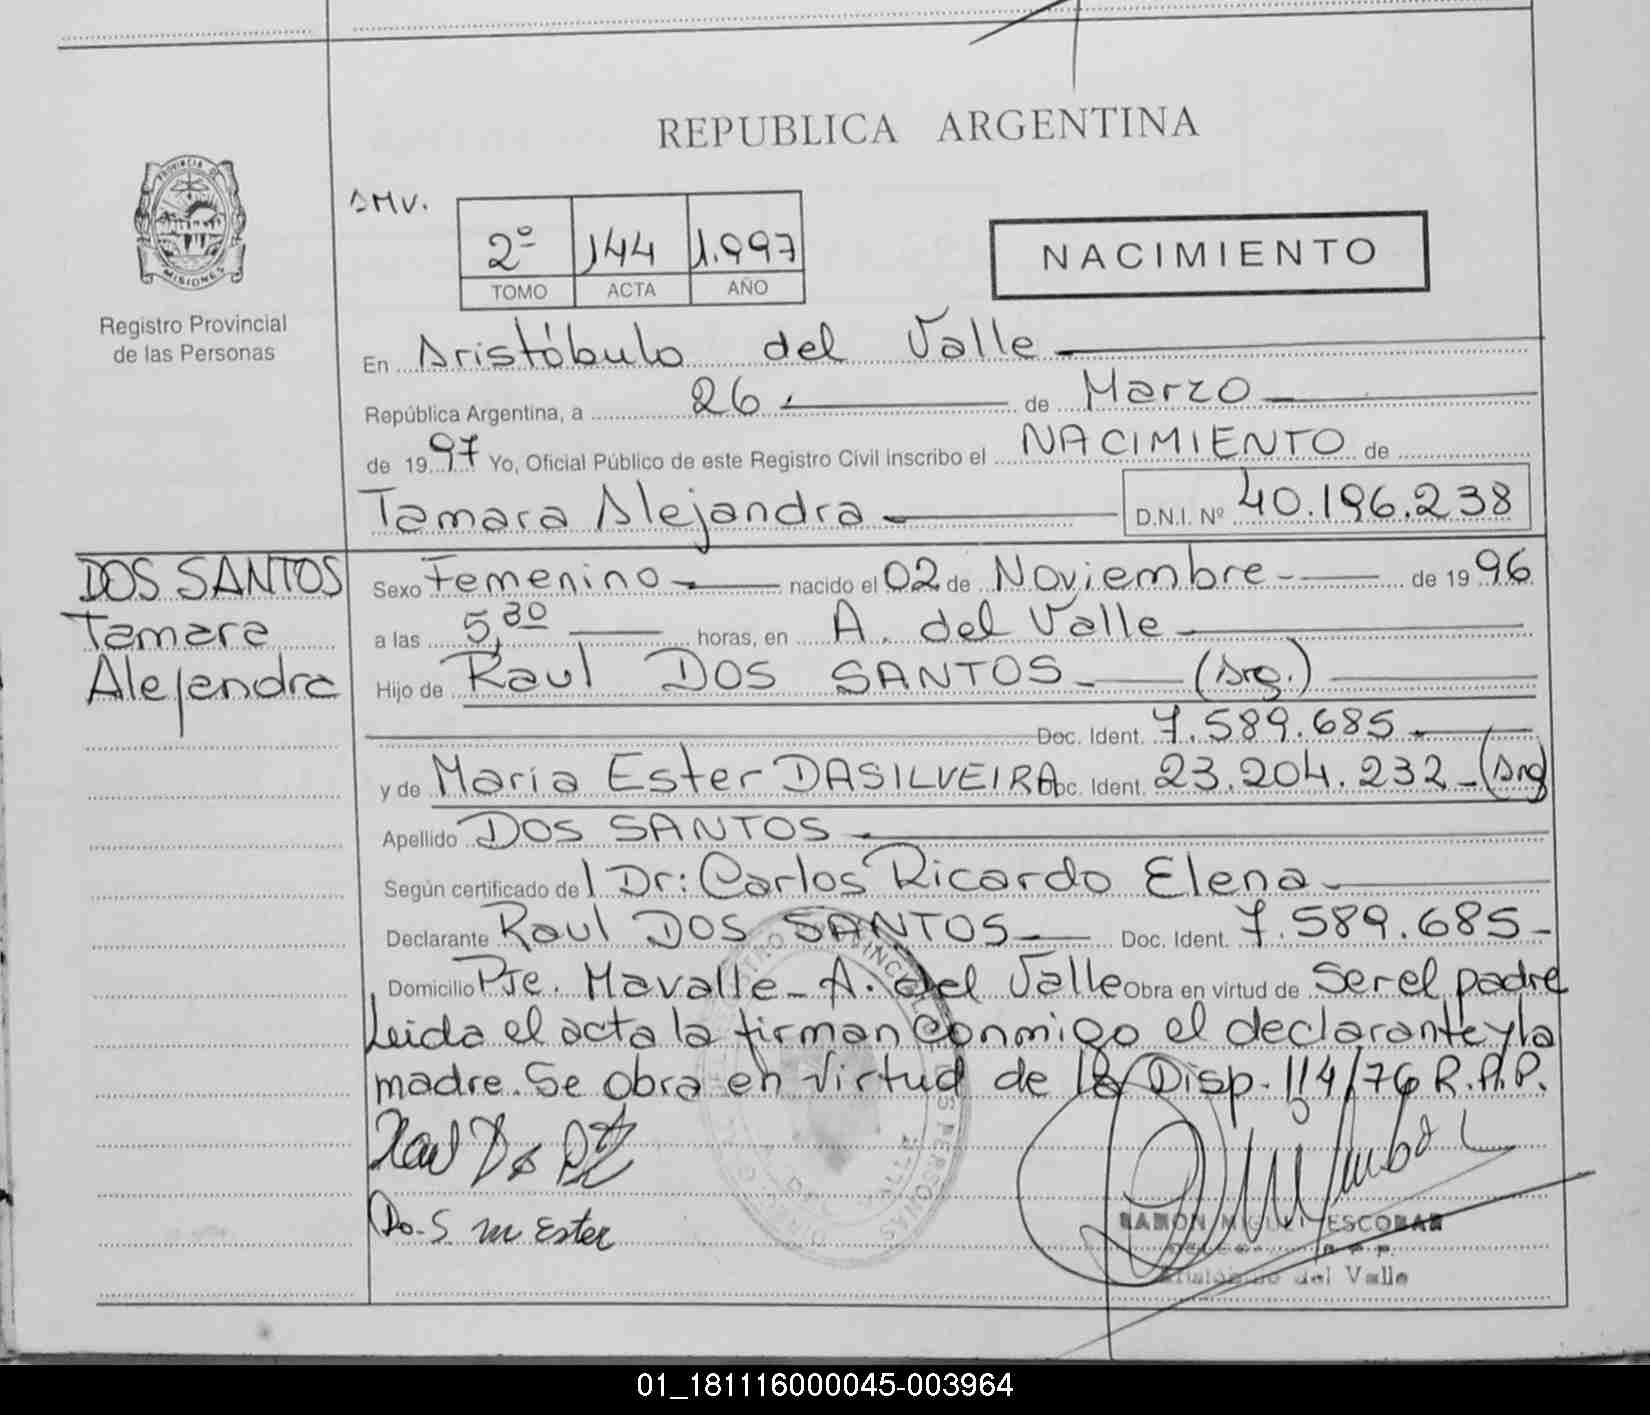 REPUBLICA ARGENTINA
PROVINCIA DE
MISIONES
Registro Provincial
de las Personas
2º 144 1.997
TOMO ACTA AÑO
NACIMIENTO
En Aristóbulo del Valle
República Argentina, a 26 de Marzo
de 1997 Yo, Oficial Público de este Registro Civil inscribo el NACIMIENTO de
Tamara Alejandra D.N.I. Nº 40.196.238
DOS SANTOS
Tamara
Alejandra
Sexo Femenino nacido el 02 de Noviembre de 1996
a las 5,30 horas, en A. del Valle
Hijo de Raul DOS SANTOS (Arg.)
Doc. Ident. 7.589.685
y de Maria Ester DASILVEIRA Doc. Ident. 23.204.232 (Arg)
Apellido DOS SANTOS
Según certificado de l Dr: Carlos Ricardo Elena
Declarante Raul DOS SANTOS Doc. Ident. 7.589.685
Domicilio Pje. Mavalle - A. del Valle Obra en virtud de Ser el padre
Leida el acta la firman conmigo el declarante y la
madre. Se obra en virtud de la Disp. 114/76 R.P.P.
Do.S m Ester
RAMON MIGUEL ESCOBAR
del Valle
01_181116000045-003964